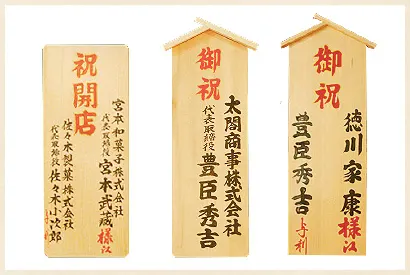 祝開店
宮本和菓子株式会社
代表取締役 宮本武蔵様江
佐々木製菓株式会社
代表取締役 佐々木小次郎
御祝
太閤商事株式会社
代表取締役 豊臣秀吉
御祝
徳川家康様江
豊臣秀吉与利